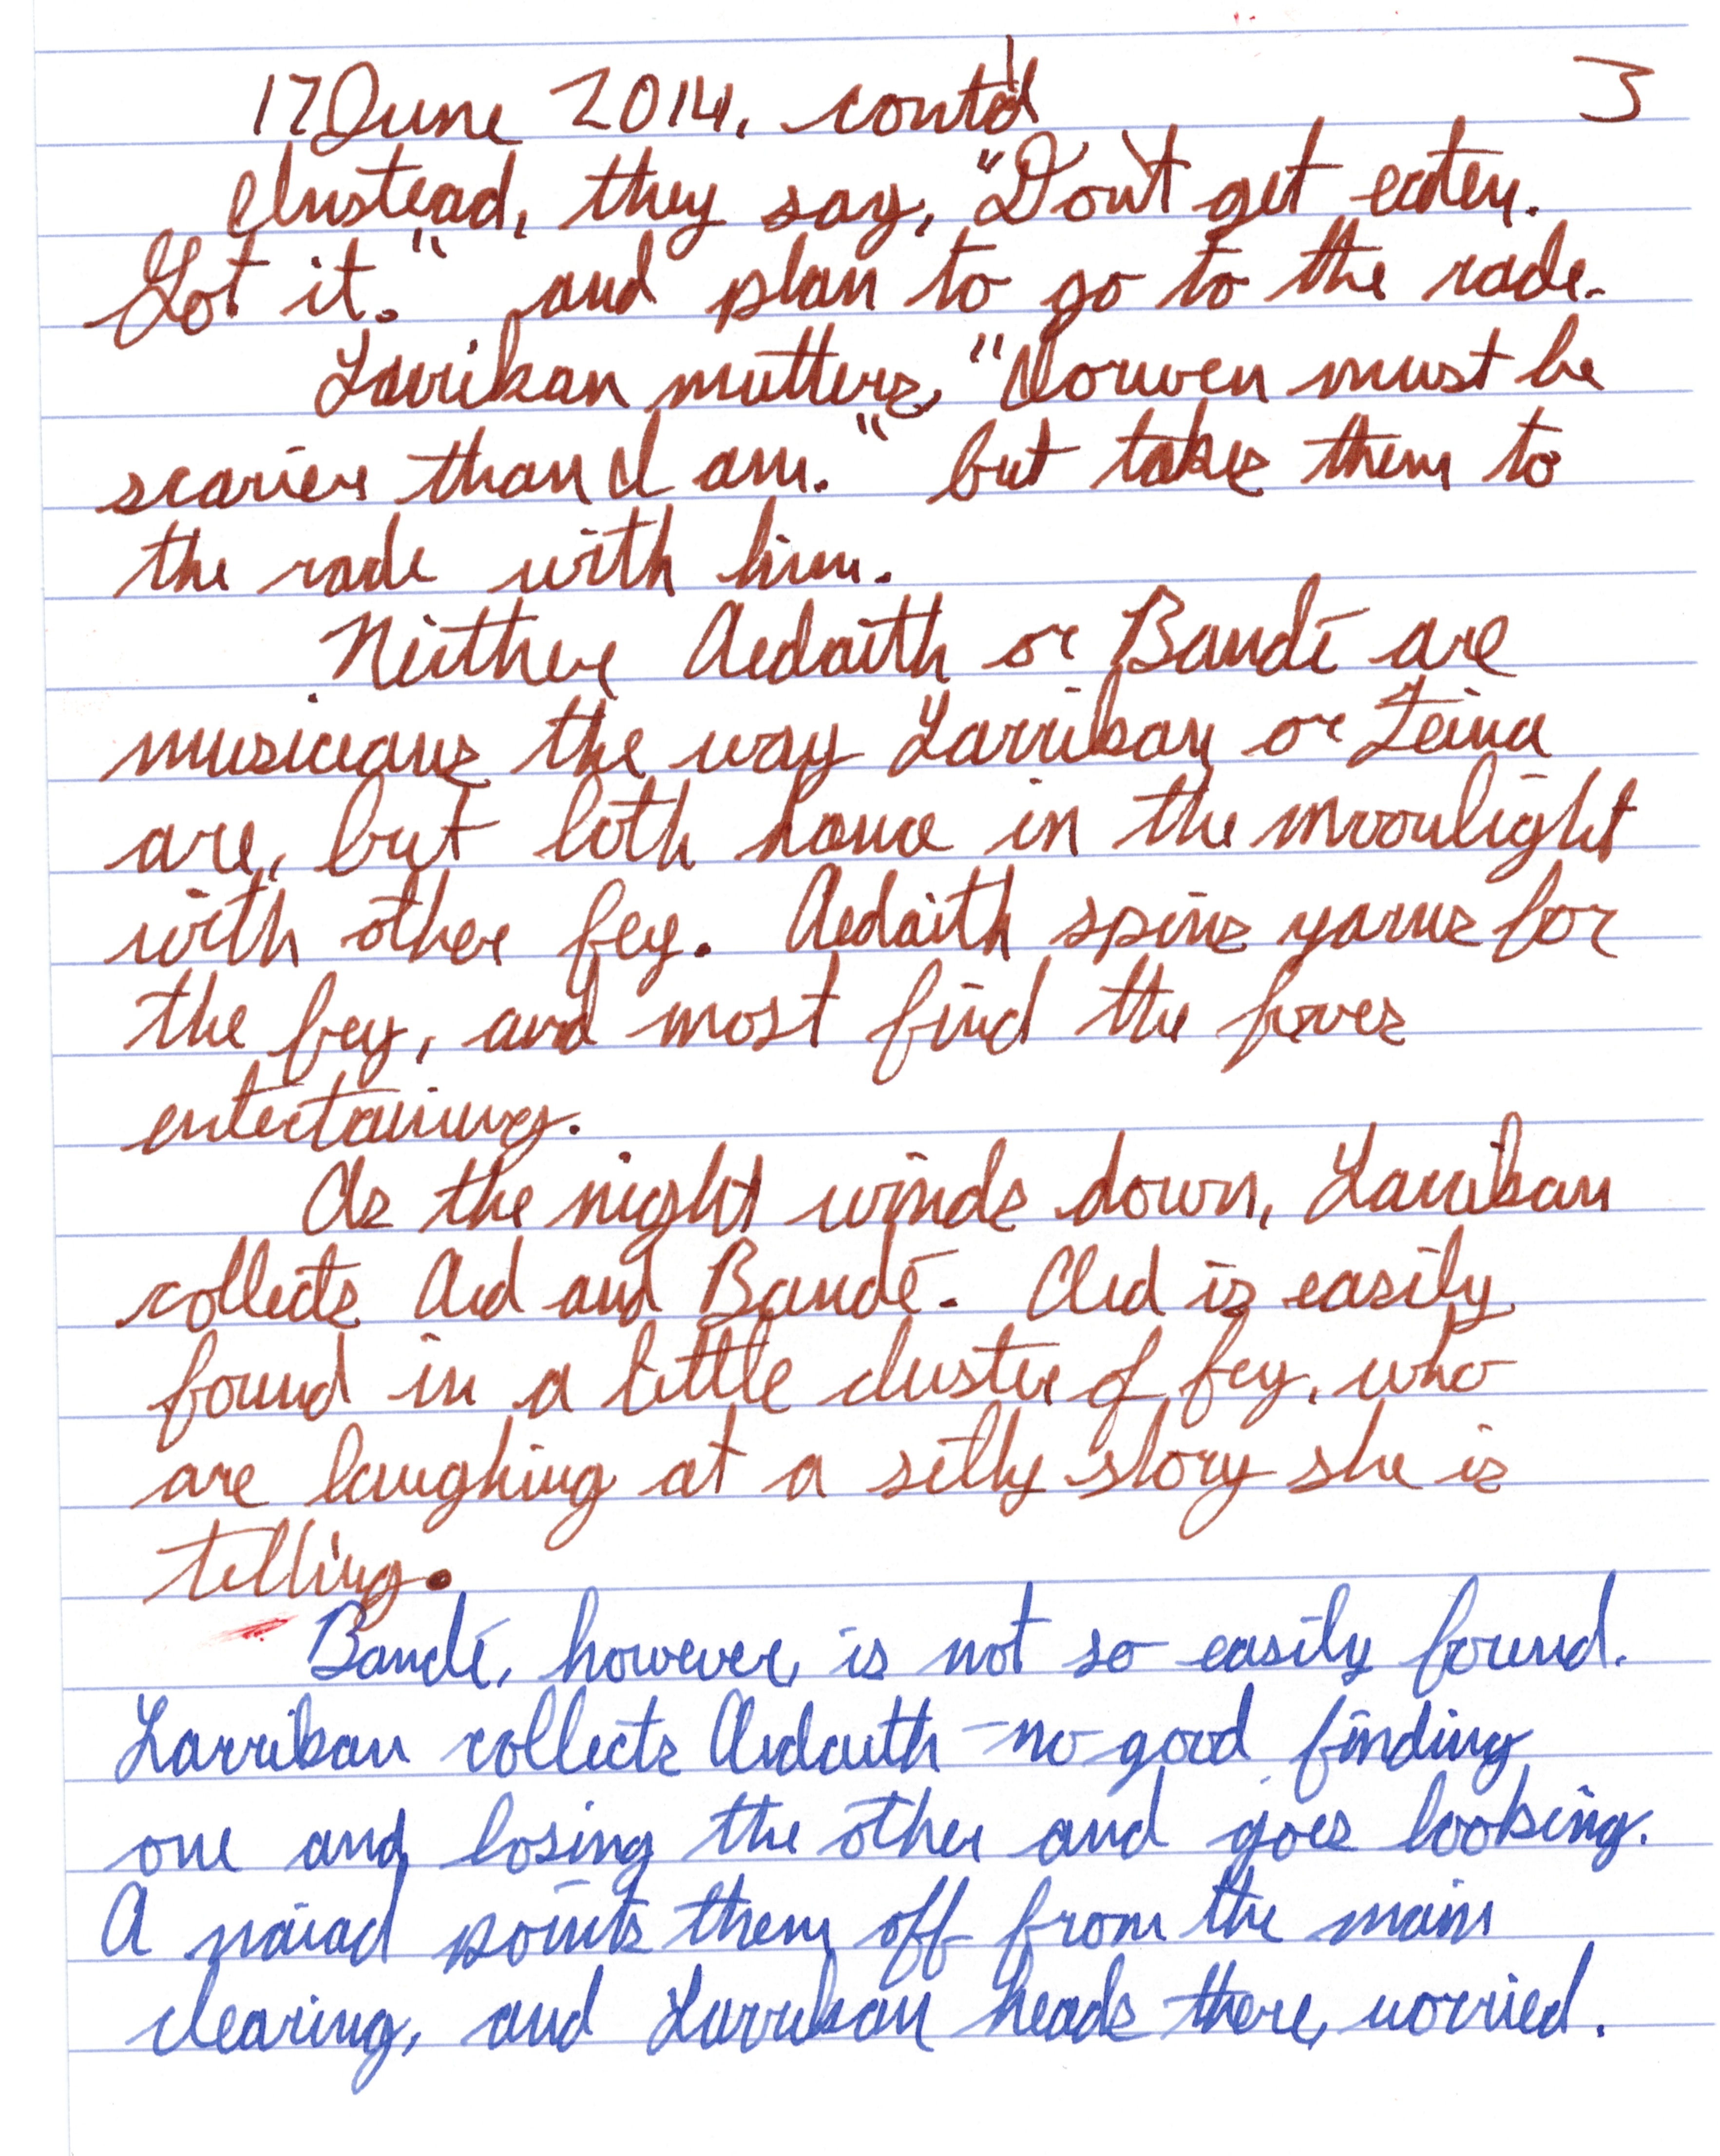 17 June 2014, cont'd 3
Instead, they say, "Don't get eaten.
Got it." and plan to go to the rade.
Larrikan mutters, "Norwen must be
scarier than I am." but takes them to
the rade with him.
Neither Aedaith or Bandé are
musicians the way Larrikan or Zeina
are, but both dance in the moonlight
with other fey. Aedaith spins yarns for
the fey, and most find the foxes
entertaining.
As the night winds down, Larrikan
collects Aed and Bandé. Aed is easily
found in a little cluster of fey, who
are laughing at a silly story she is
telling.
Bandé, however, is not so easily found.
Larrikan collects Aedaith - no good finding
one and losing the other and goes looking.
A naiad points them off from the main
clearing, and Larrikan heads there, worried.